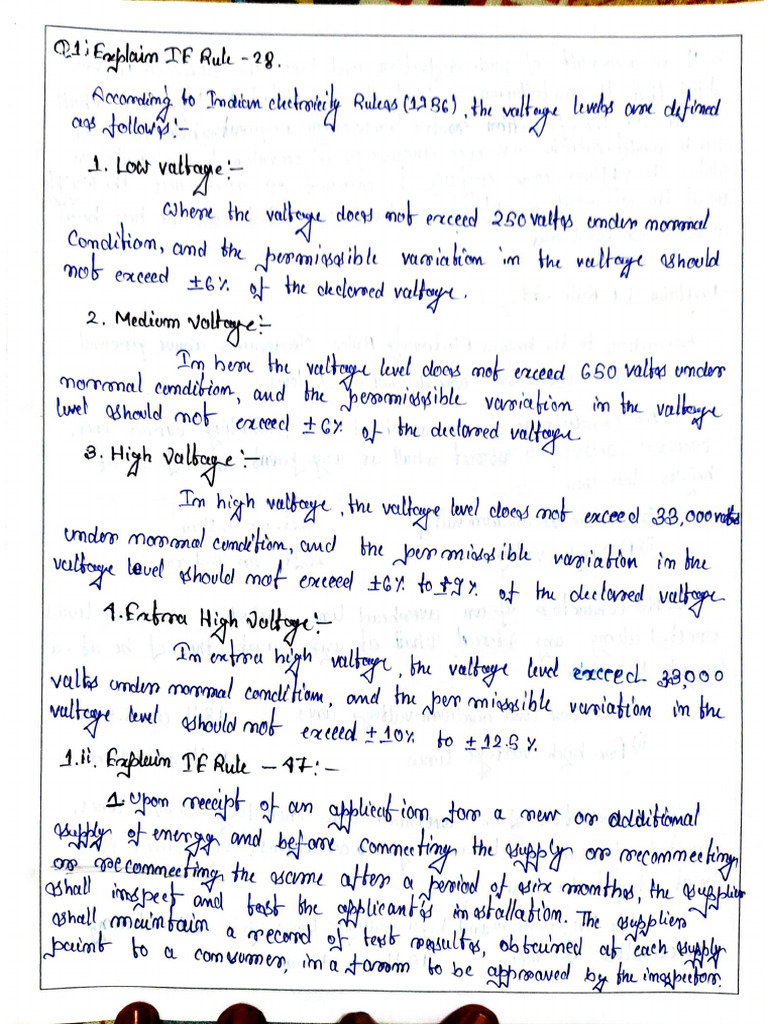 Q1; Explain IE Rule - 28.
According to Indian electricity Rules (1956), the voltage levels are defined
as follows:-
1. Low voltage:-
Where the voltage does not exceed 250 volts under normal
Condition, and the permissible variation in the voltage should
not exceed ±6% of the declared voltage.
2. Medium Voltage:-
In here the voltage level does not exceed 650 volts under
normal condition, and the permissible variation in the voltage
level should not exceed ±6% of the declared voltage
3. High Voltage:-
In high voltage, the voltage level does not exceed 33,000 volts
under normal condition, and the permissible variation in the
voltage level should not exceed ±6% to ±9% of the declared voltage
4. Extra High Voltage:-
In extra high voltage, the voltage level exceed 33,000
volts under normal condition, and the permissible variation in the
voltage level should not exceed ±10% to ±12.5%.
1.ii. Explain IE Rule - 47:-
1. Upon receipt of an application for a new or additional
supply of energy and before connecting the supply or reconnecting
or reconnecting the same after a period of six months, the supplier
shall inspect and test the applicant's installation. The supplier
shall maintain a record of test results, obtained at each supply
point to a consumer, in a form to be approved by the inspector.